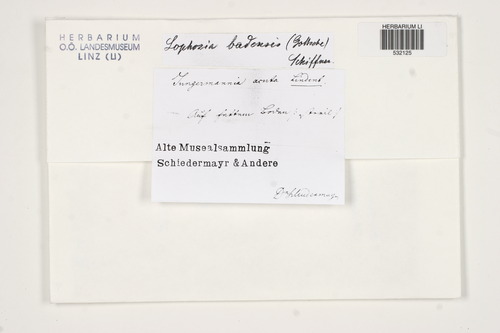 HERBARIUM
O.Ö. LANDESMUSEUM
LINZ (LI)
Lophozia badensis (Gottsche)
Schiffner.
HERBARIUM LI
532125
Jungermannia acuta Lindenb.
Auf
Alte Musealsammlung
Schiedermayr & Andere